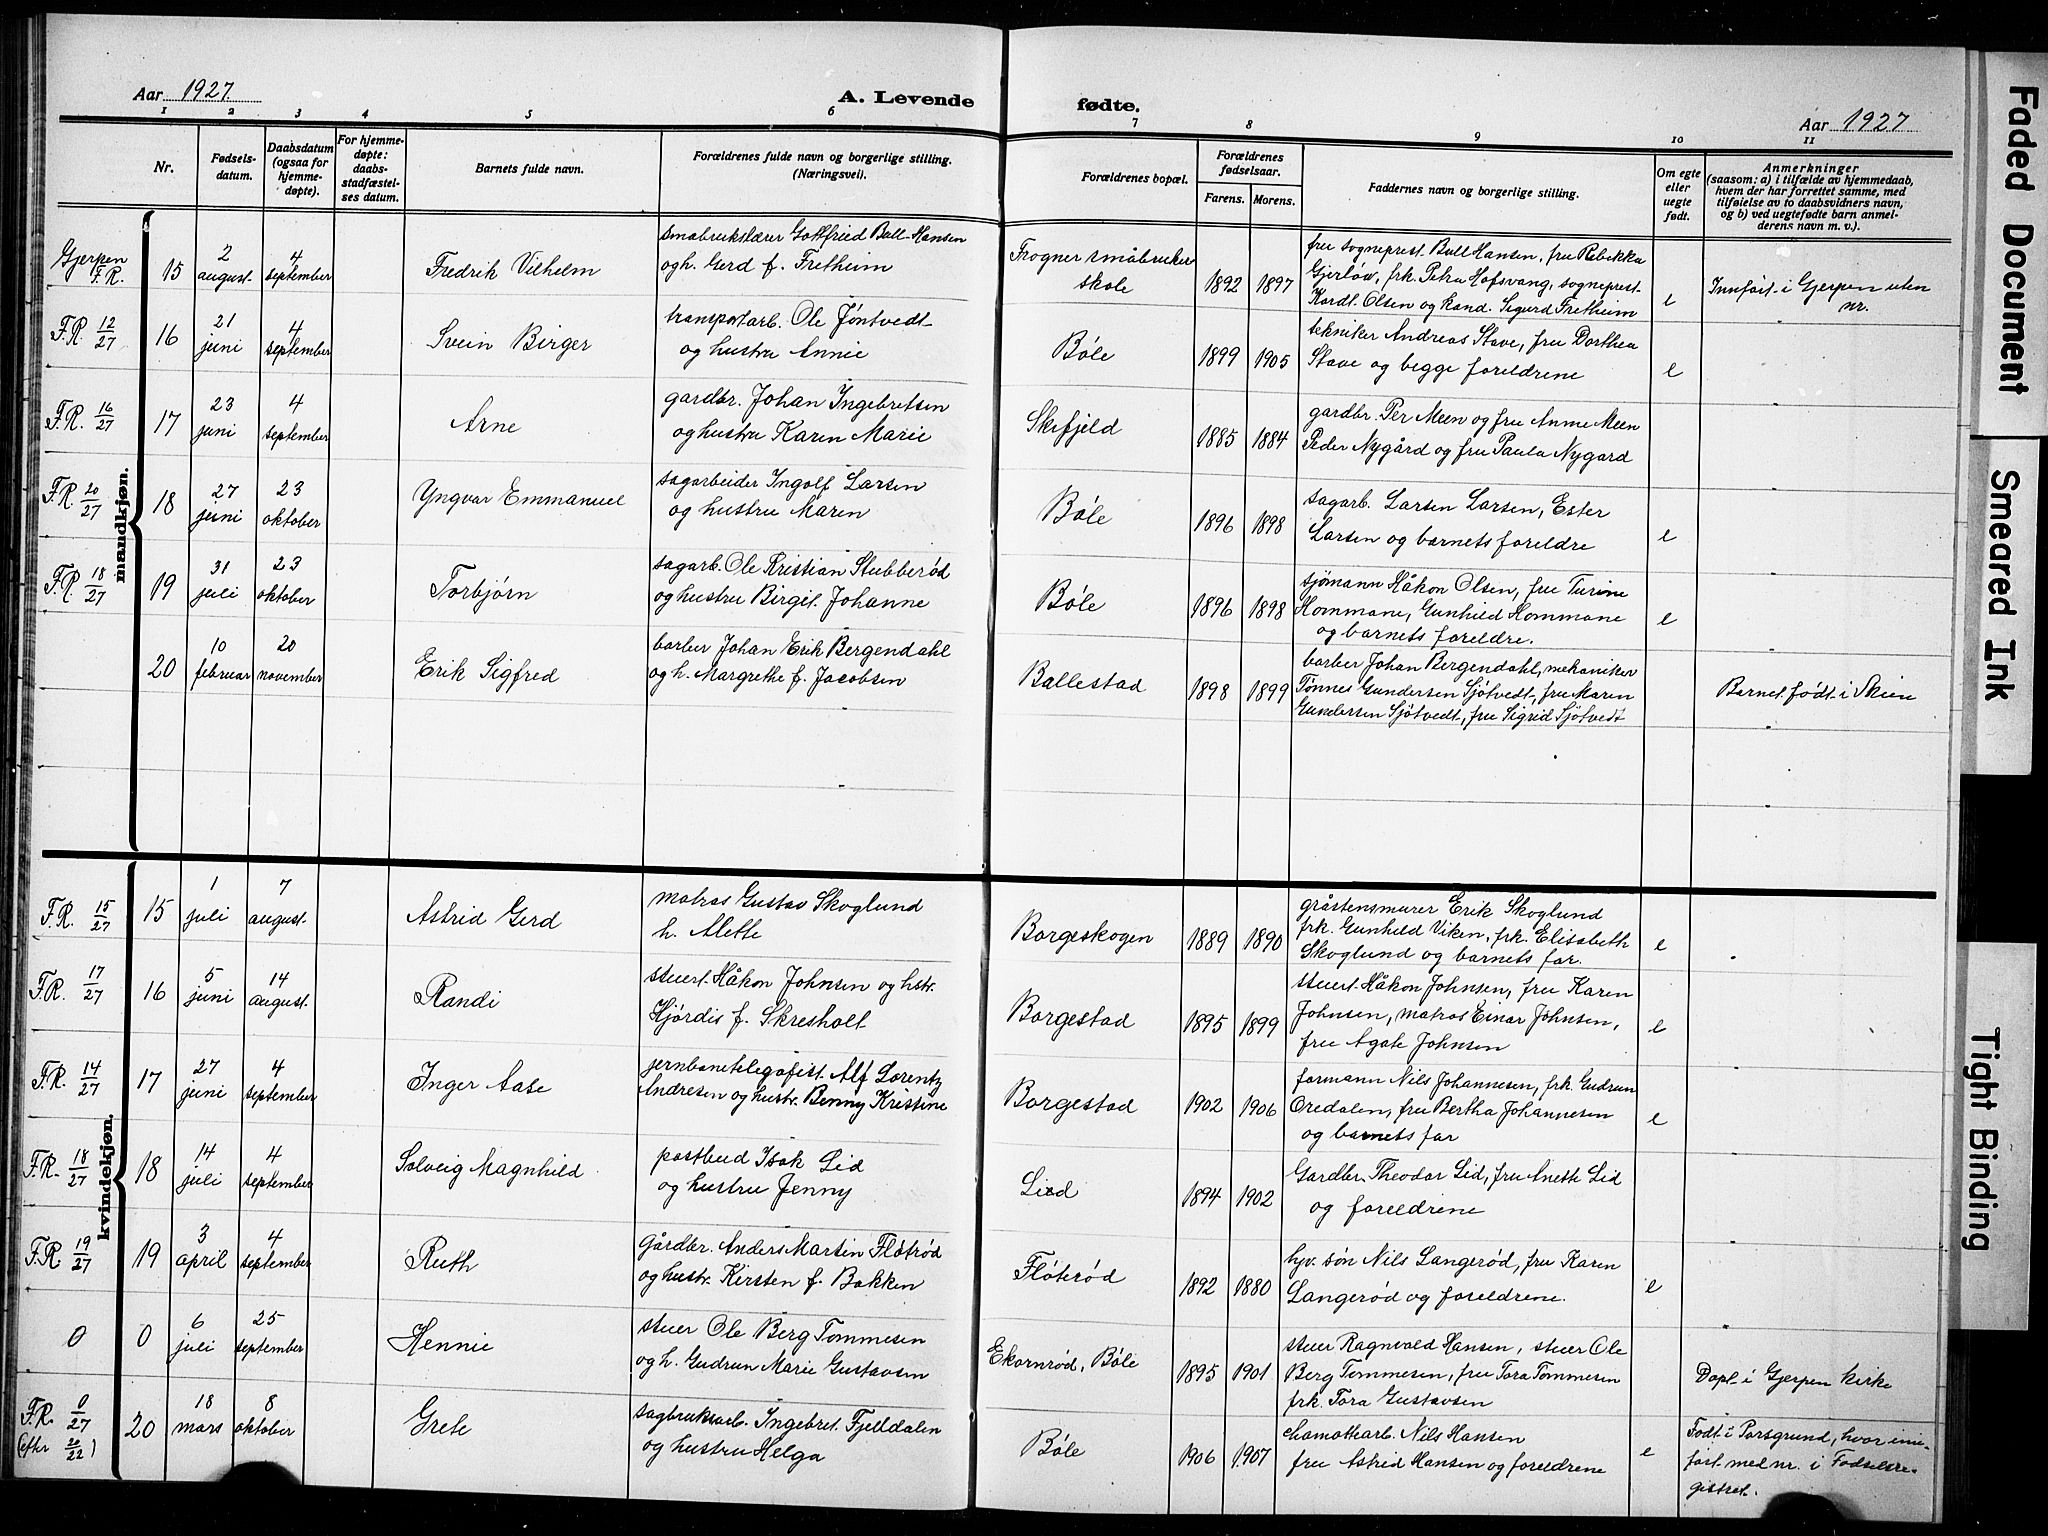 Aar 1927.
A. Levende
fødte.
Aar 1927
1 2 3 4 5 6 7 8 9 10 11
Nr.
Fødsels-
datum.
Daabsdatum
(ogsaa for
hjemme-
døpte).
For hjemme-
døpte:
daabs-
stadfæstel-
ses datum.
Barnets fulde navn.
Forældrenes fulde navn og borgerlige stilling.
(Næringsvei).
Forældrenes bopæl.
Forældrenes
fødselsaar.
Farens. Morens.
Faddernes navn og borgerlige stilling.
Om egte
eller
uegte
født.
Anmerkninger
(saasom: a) i tilfælde av hjemmedaab,
hvem der har forrettet samme, med
tilføielse av to daabsvidners navn,
og b) ved uegtefødte barn anmel-
derens navn m. v.).
mandkjøn.
Gjerpen
F.R.
15
2
august
4
september
Fredrik Vilhelm
småbrukslærer Gottfried Bull-Hansen
og h. Gerd f. Fretheim
Frogner småbruker
skole
1892 1897
fru sogneprest Bull Hansen, fru Rebekka
Gjerløw, frk. Petra Hofsvang, sogneprest
Kordt Olsen og kand. Sigurd Fretheim
e
Innført i Gjerpen uten
nr.
F.R. 12/27
16
21
juni
4
september
Svein Birger
transportarb. Ole Jøntvedt
og hustru Annie
Bøle
1899 1905
tekniker Andreas Stave, fru Dorthea
Stave og begge foreldrene
e
F.R. 16/27
17
23
juni
4
september
Arne
gardbr. Johan Ingebretsen
og hustru Karen Marie
Skifjeld
1885 1884
gardbr. Per Meen og fru Anne Meen
Peder Nygård og fru Paula Nygard
F.R. 20/27
18
27
juni
23
oktober
Yngvar Emmanuel
sagarbeider Ingolf Larsen
og hustru Maren
Bøle
1896 1898
sagarb. Larsen Larsen, Ester
Larsen og barnets foreldre
e
F.R. 18/27
19
31
juli
23
oktober
Torbjørn
sagarb. Ole Kristian Stubberød
og hustru Birgit Johanne
Bøle
1896 1898
sjømann Håkon Olsen, fru Turine
Hommane, Gunhild Hommane
og barnets foreldre.
e
20
10
februar
20
november
Erik Sigfred
barber Johan Erik Bergendahl
og h. Margrethe f. Jacobsen
Ballestad
1898 1899
barber Johan Bergendahl, mekaniker
Tønnes Gundersen Sjøtvedt, fru Maren
Gundersen Sjøtvedt, fru Sigrid Sjøtvedt
Barnet født i Skien
kvindekjøn.
F.R. 15/27
15
1
juli
7
august
Astrid Gerd
matros Gustav Skoglund
h. Alette
Borgeskogen
1889 1890
gråstensmurer Erik Skoglund
frk. Gunhild Viken, frk. Elisabeth
Skoglund og barnets far.
e
F.R. 17/27
16
5
juni
14
august
Randi
stuert Håkon Johnsen og hstr.
Hjørdis f. Skresholt
Borgestad
1895 1899
stuert Håkon Johnsen, fru Karen
Johnsen, matros Einar Johnsen,
fru Agate Johnsen
e
F.R. 14/27
17
27
juni
4
september
Inger Aase
jernbanetelegafist Alf Lorentz
Andresen og hustr. Benny Kristine
Borgestad
1902 1906
formann Nils Johannesen, frk. Gudrun
Oredalen, fru Bertha Johannesen
og barnets far
e
F.R. 18/27
18
14
juli
4
september
Solveig Magnhild
postbud Isak Lid
og hustru Jenny
Lied
1894 1902
Gardbr. Theodor Lid, fru Anette Lid
og foreldrene
F.R. 19/27
19
3
april
4
september
Ruth
Gårdbr. Anders Martin Fløtrød
og hustr. Kirsten f. Bakken
Fløterød
1892 1880
hjv. søn Nils Langerød, fru Karen
Langerød og foreldrene.
e
0
0
6
juli
25
september
Hennie
stuer Ole Berg Tommesen
og h. Gudrun Marie Gustavsen
Ekornrød, Bøle
1895 1901
stuer Ragnvald Hansen, stuer Ole
Berg Tommesen, fru Tora Tommesen
frk. Tora Gustavsen
Døpt i Gjerpen kirke
F.R. 0/27
(efter 20/22)
20
18
mars
8
oktober
Grete
sagbruksarb. Ingebret Fjelldalen
og hustru Helga
Bøle
1906 1907
chamottearb. Nils Hansen
fru Astrid Hansen og foreldrene
e
Født i Porsgrund, hvor inn-
ført med nr. i Fødselsre-
gistret.
Faded Document
Smeared Ink
Tight Binding